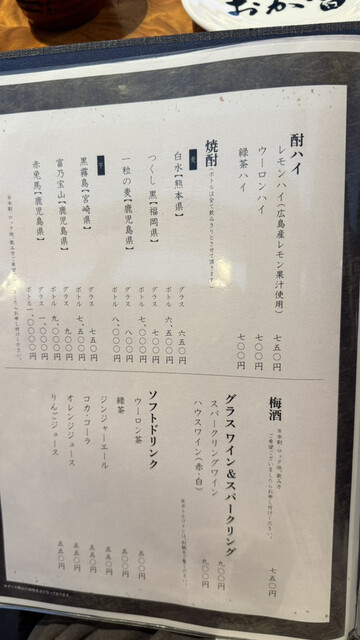 酎ハイ
レモンハイ(広島産レモン果汁使用) 七五〇円
ウーロンハイ 七〇〇円
緑茶ハイ 七〇〇円
焼酎(ボトルは全て飲みきりとさせて頂きます)
麦
白水【熊本県】 グラス 六五〇円
ボトル 六、五〇〇円
つくし 黒【福岡県】 グラス 七〇〇円
ボトル 七、〇〇〇円
一粒の麦【鹿児島県】 グラス 八〇〇円
ボトル 八、〇〇〇円
芋
黒霧島【宮崎県】 グラス 七五〇円
ボトル 七、五〇〇円
富乃宝山【鹿児島県】 グラス 九〇〇円
ボトル 九、〇〇〇円
赤兎馬【鹿児島県】 グラス 一、〇〇〇円
ボトル 一〇、〇〇〇円
梅酒 七五〇円
※水割、ロック他、飲み方
ご希望ございましたらお申し付けください。
グラスワイン&スパークリング
スパークリングワイン 九〇〇円
ハウスワイン(赤・白) 九〇〇円
ソフトドリンク
ウーロン茶 五〇〇円
緑茶 五〇〇円
ジンジャーエール 五五〇円
コカ・コーラ 五五〇円
オレンジジュース 五五〇円
りんごジュース 五五〇円